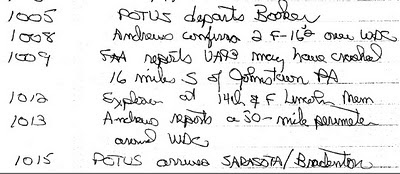 1005 POTUS departs Booker
1008 Andrews confirms 2 F-16s over WDC
1009 FAA reports UA93 may have crashed
16 miles S of Johnstown PA
1012 Explosion at 14th & F Lincoln Mem
1013 Andrews reports a 30-mile perimeter
around WDC
1015 POTUS arrives SARASOTA/Bradenton